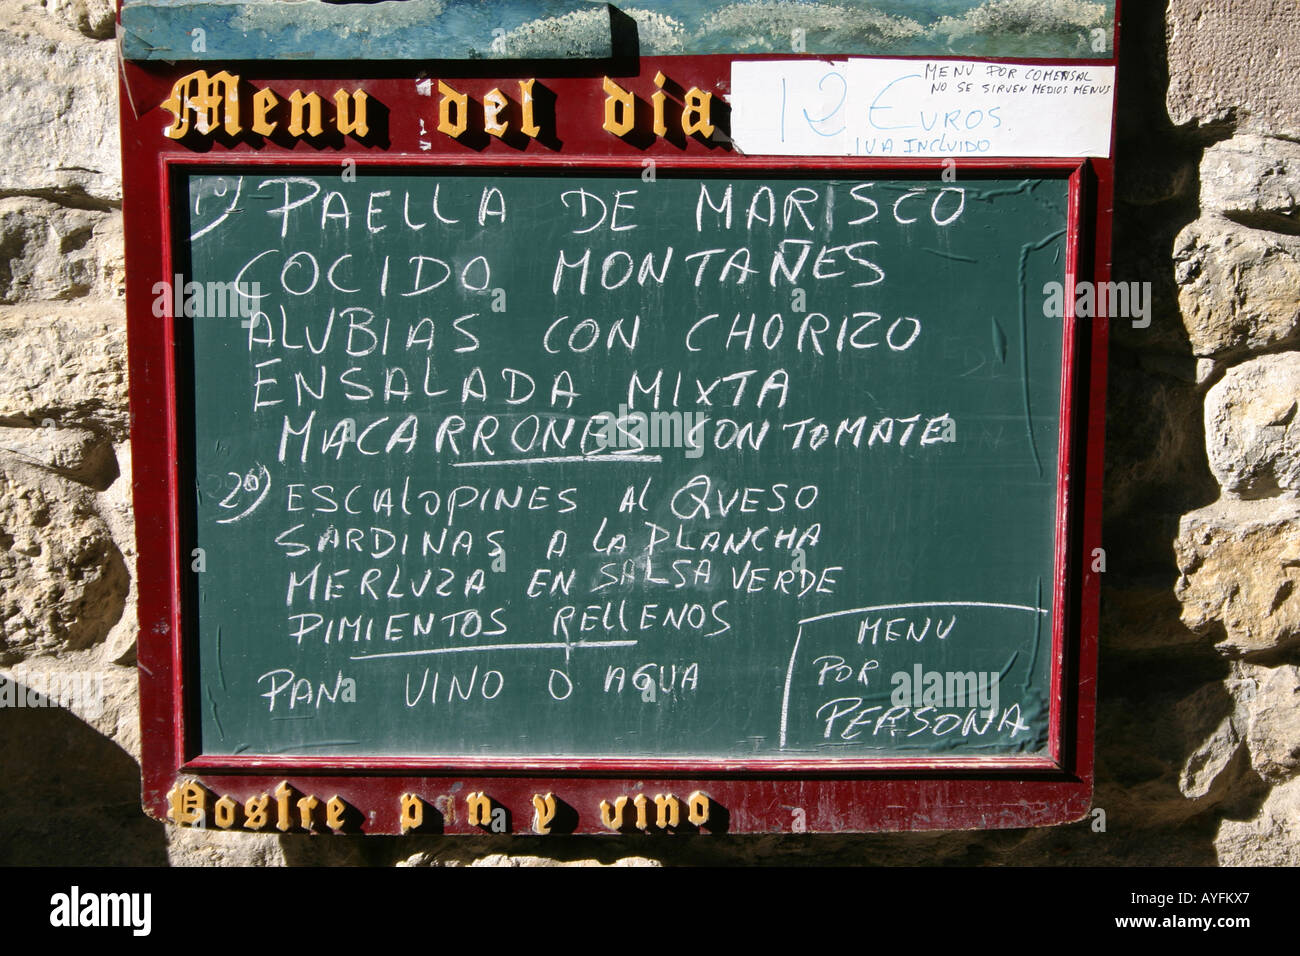 Menu del dia
12 EUROS.
MENU POR COMENSAL
NO SE SIRVEN MEDIOS MENUS
IVA INCLUIDO
1º) PAELLA DE MARISCO
COCIDO MONTAÑES
ALUBIAS CON CHORIZO
ENSALADA MIXTA
MACARRONES CON TOMATE
2º) ESCALOPINES AL QUESO
SARDINAS A LA PLANCHA
MERLUZA EN SALSA VERDE
PIMIENTOS RELLENOS
PAN VINO O AGUA
MENU
POR
PERSONA
Postre p n y vino
alamy
Image ID: AYFKX7
www.alamy.com